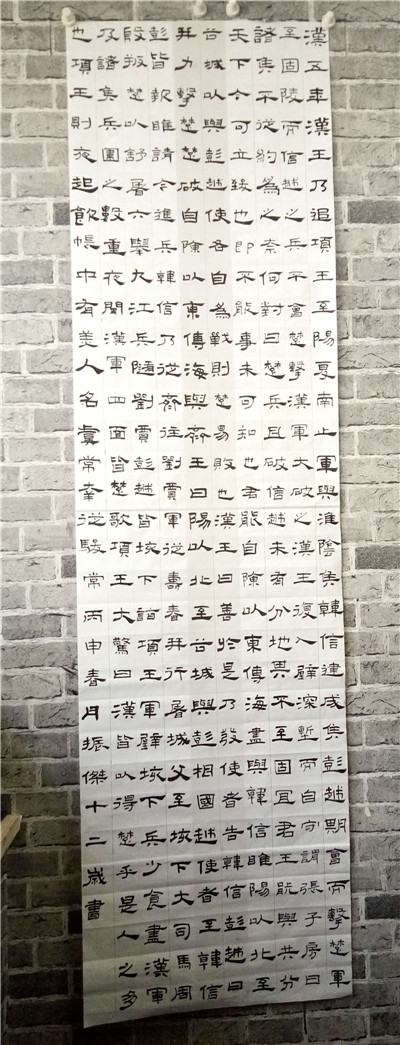 漢五年漢王乃追項王至陽夏南止軍與淮陰侯韓信建成侯彭越期會而擊楚軍
至固陵而信越之兵不會楚擊漢軍大破之漢王復入壁深塹而自守謂張子房曰
諸侯不從約為之奈何對曰楚兵且破信越未有分地其不至固宜君王能與共分
天下今可立致也即不能事未可知也君能自陳以東傳海盡與韓信睢陽以北至
谷城以與彭越使各自為戰則楚易敗也漢王曰善於是乃發使者告韓信彭越曰
并力擊楚楚破自陳以東傳海與齊王曰陽以北至谷城與彭相國越使者至韓信
彭皆報睢請今進兵韓信乃從齊往劉賈軍從壽春并行屠城父至垓下大司馬周
殷叛楚以舒屠六舉九江兵隨劉賈彭越皆垓下詣項王軍壁垓下兵少食盡漢軍
及諸侯兵圍之數重夜聞漢軍四面皆楚歌項王大驚曰漢皆以得楚乎是人之多
也項王則夜起飲帳中有美人名虞常幸從駿常丙申春月振傑十二歲書